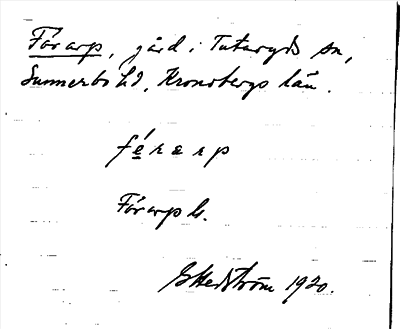 Fårarp, gård i Tutaryds sn,
Sunnerbo hd, Kronobergs län.
fɇ́rarp
Fårarp h.
G Hedström 1920.